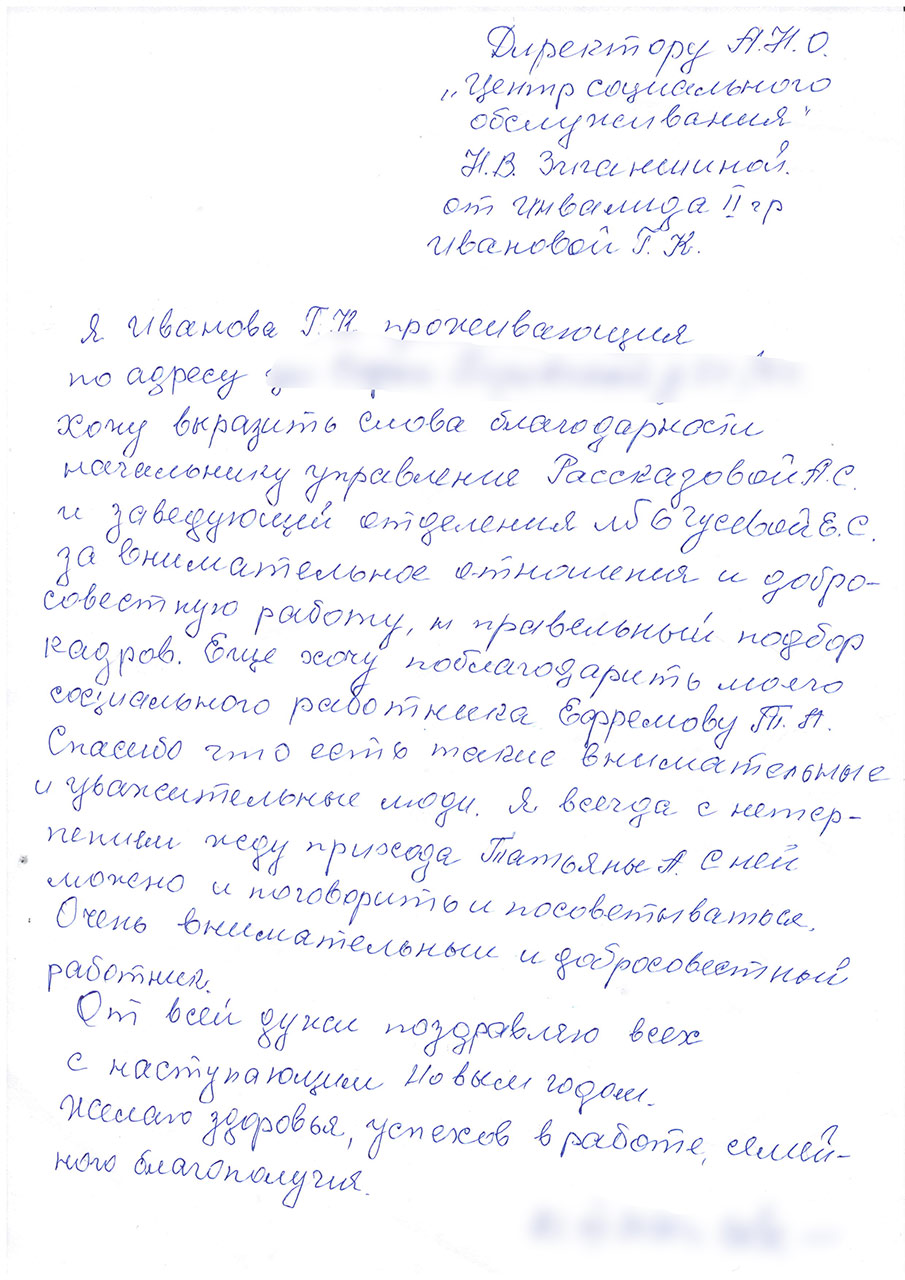 Директору А.Н.О.
„Центр социального
обслуживания"
Н.В. Зиганшиной.
от инвалида II гр
Ивановой Г.К.
Я Иванова Г.К. проживающия
по адресу
Хочу выразить слова благодарности
начальнику управления Рассказовой А.С.
и заведующей отделения №6 Гусевой Е.С.
за внимательное отношения и добро-
совестную работу, и правельный подбор
кадров. Еще хочу поблагодарить моего
социального работника Ефремову Т.А.
Спасибо что есть такие внимательные
и уважительные люди. Я всегда с нетер-
пением жду прихода Татьяны А. С ней
можно и поговорить и посоветываться.
Очень внимательный и добросовестный
работник.
От всей души поздравляю всех
с наступающим Новым годом.
Желаю здоровья, успехов в работе, семей-
ного благополучия.